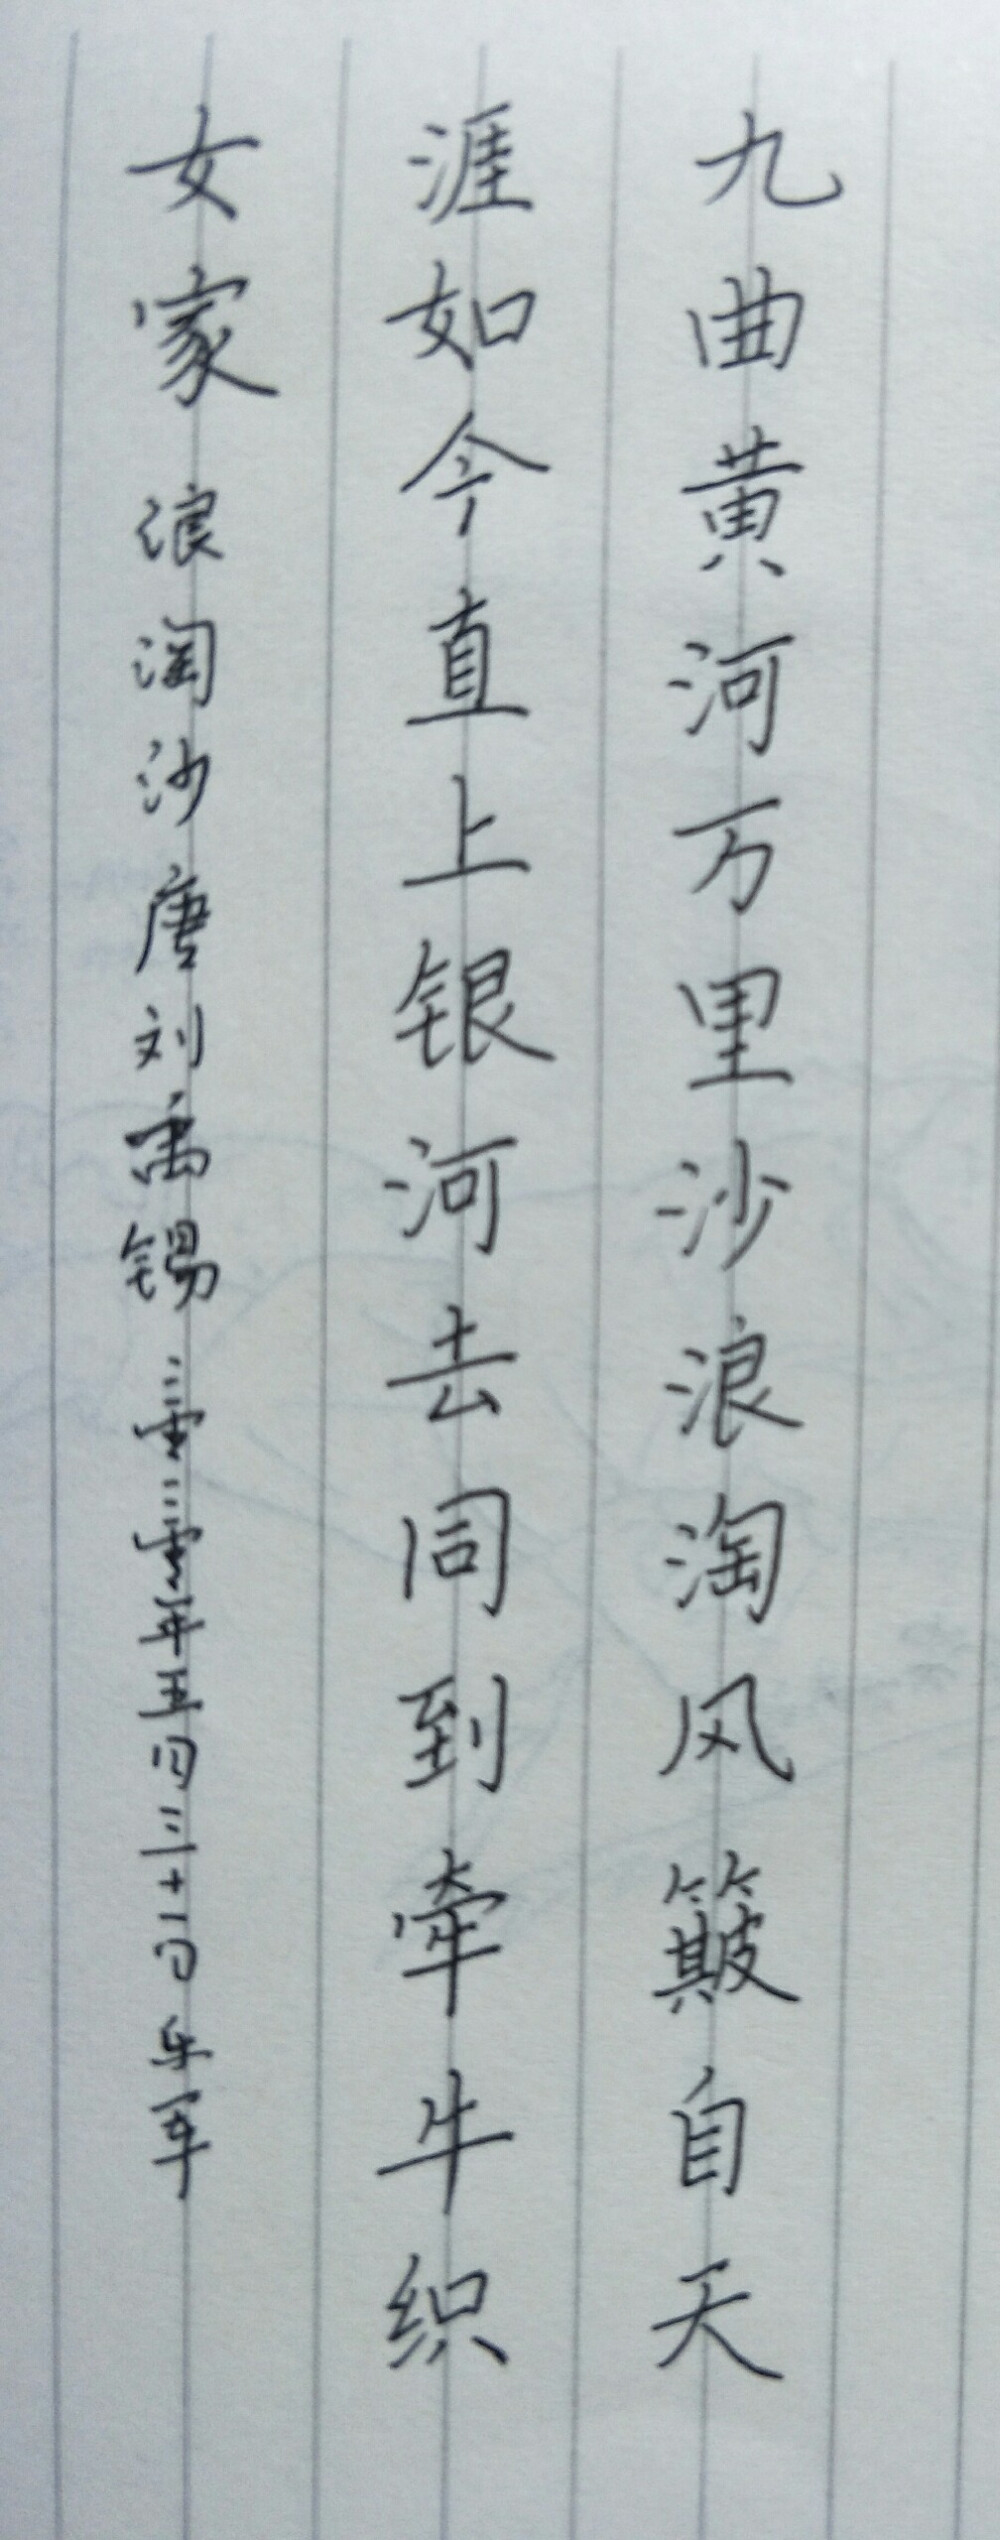 九曲黄河万里沙浪淘风簸自天
涯如今直上银河去同到牵牛织
女家 浪淘沙唐刘禹锡 二零二零年五月十一日